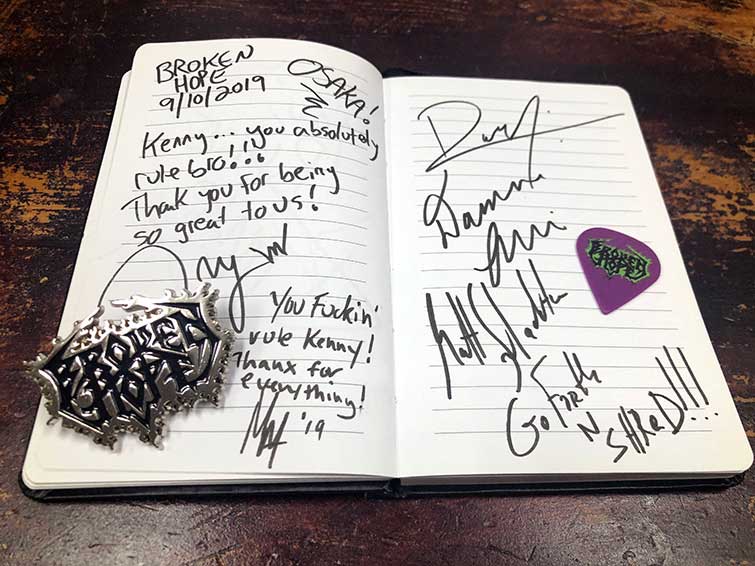 BROKEN
HOPE
9/10/2019
OSAKA!
Kenny... you absolutely
rule bro!!!
Thank you for being
so great to us!
You Fuckin'
rule Kenny!
Thanx for
everything!
'19
BROKEN
HOPE
Matt
Go Forth
N
SHReD!!!...
BROKEN
HOPE